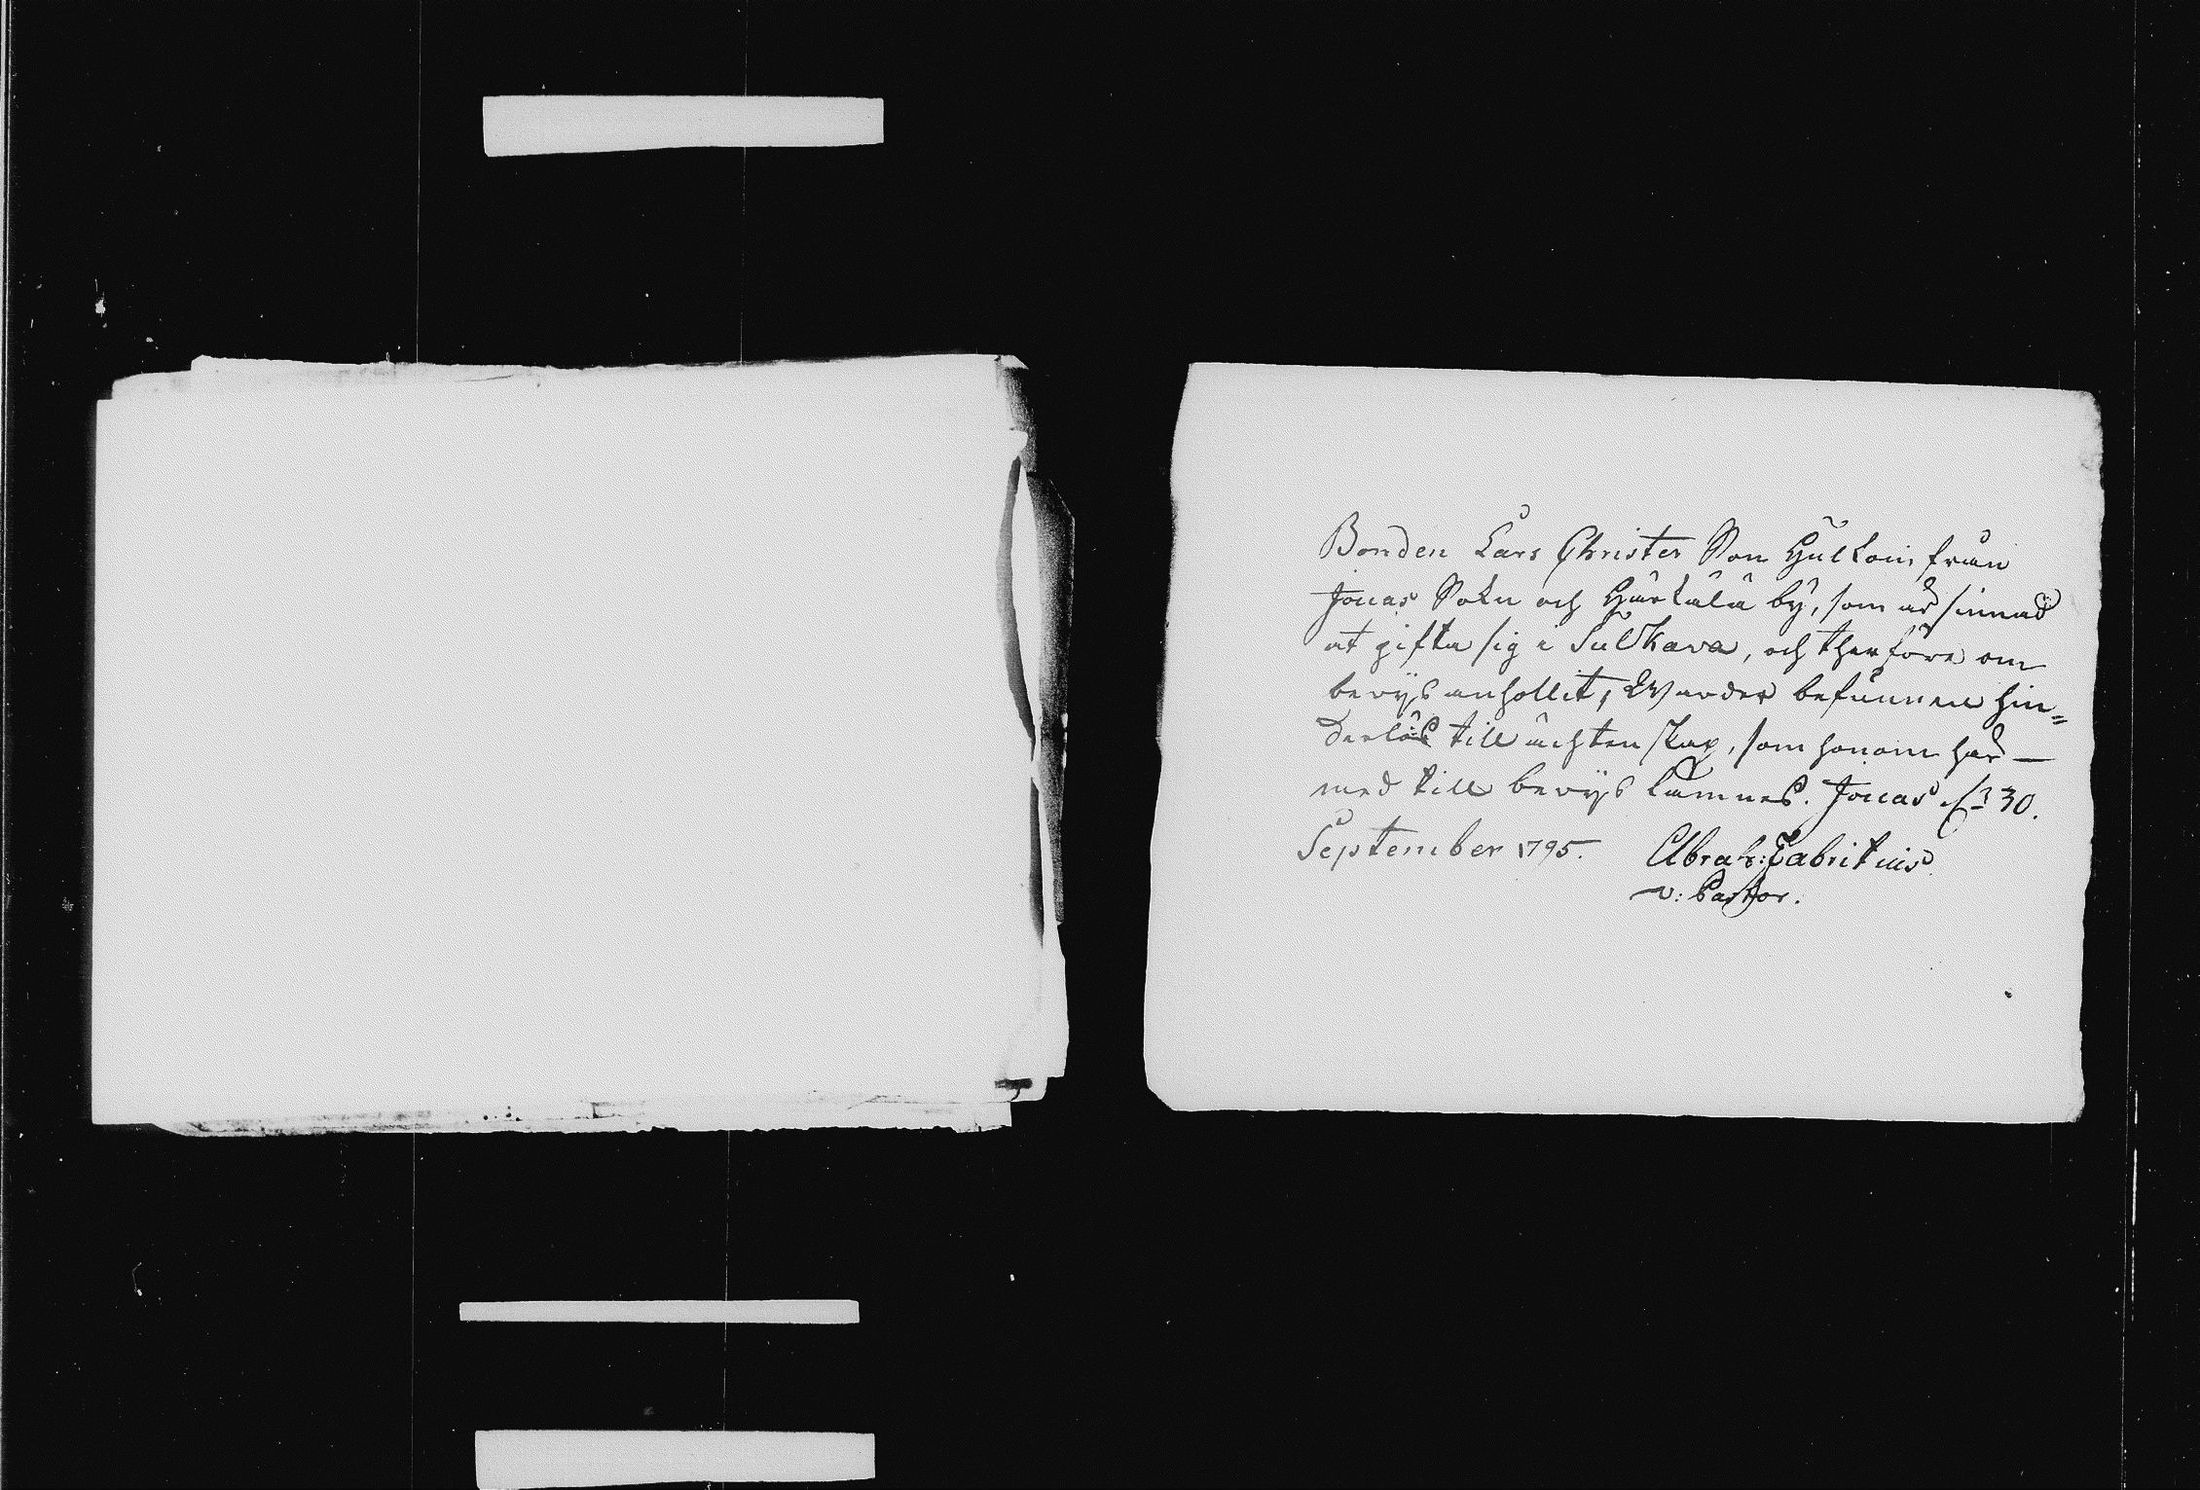 Bonden Lars Christer Son Hulkoin från
Jonas Sokn och Härkälä by, som är sinnad
at gifta sig i Sulkava, och therföre om
bevys anhollit, Warder befunnen hin=
derlös till ächtenskap, som honom här —
med till bevys lämnes. Jonas 30.
September 1795. Abrah: Fabritius
v: Pastor.